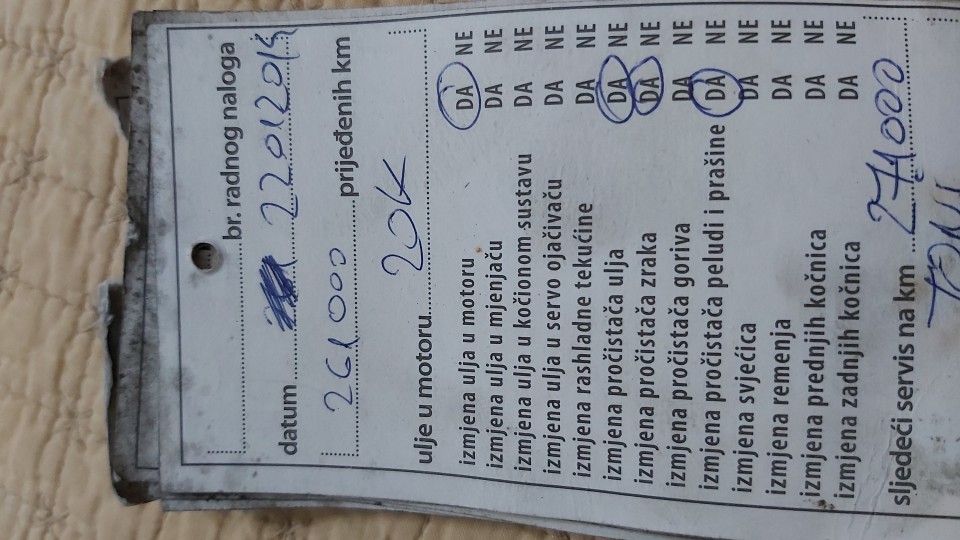 br. radnog naloga
datum 22012019
261000 prijeđenih km
ulje u motoru 20K
izmjena ulja u motoru DA NE
izmjena ulja u mjenjaču DA NE
izmjena ulja u kočionom sustavu DA NE
izmjena ulja u servo ojačivaču DA NE
izmjena rashladne tekućine DA NE
izmjena pročistača ulja DA NE
izmjena pročistača zraka DA NE
izmjena pročistača goriva DA NE
izmjena pročistača peludi i prašine DA NE
izmjena svjećica DA NE
izmjena remenja DA NE
izmjena prednjih kočnica DA NE
izmjena zadnjih kočnica DA NE
sljedeći servis na km 271000